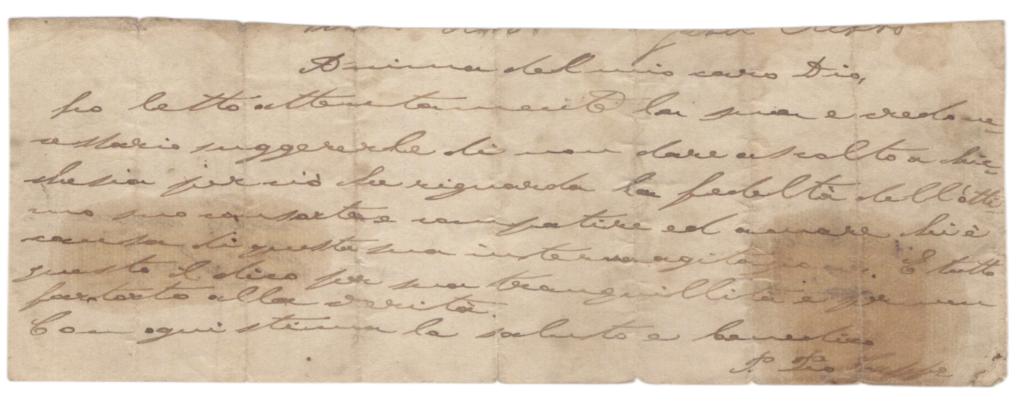 Gesù Cristo
Anima del mio caro Dio,
ho letto attentamente la sua e credo ne-
cessario suggererle di non dare ascolto a chic-
chesia per ciò che riguarda la fedeltà dell'otti-
mo suo consorte e compatire ed amare chi è
causa di questa sua interna agitazione. E tutto
questo l dico per sua tranquillità e per non
far torto alla verità.
Con ogni stima la saluto e benedico
P. Pio